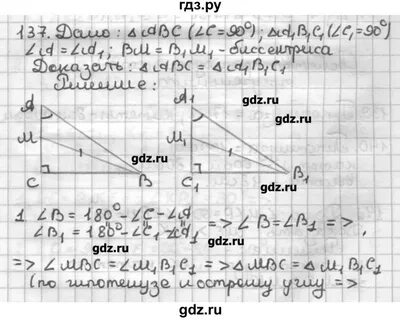 гдз.ру
137. Дано: △ABC (∠C=90°); △A₁B₁C₁(∠C=90°)
∠A = ∠A₁; BM = B₁M₁ - биссектриса
Доказать: △ABC = △A₁B₁C₁
Решение: гдз.ру
A A₁
M M₁
гдз.ру
C B C₁ B₁
гдз.ру
1 ∠B = 180° - ∠C - ∠A
∠B₁ = 180° - ∠C₁ - ∠A₁ => ∠B = ∠B₁ => ,
=> ∠MBC = ∠M₁B₁C₁ => △MBC = △M₁B₁C₁
(по гипотенузе и острому углу =>
гдз.ру